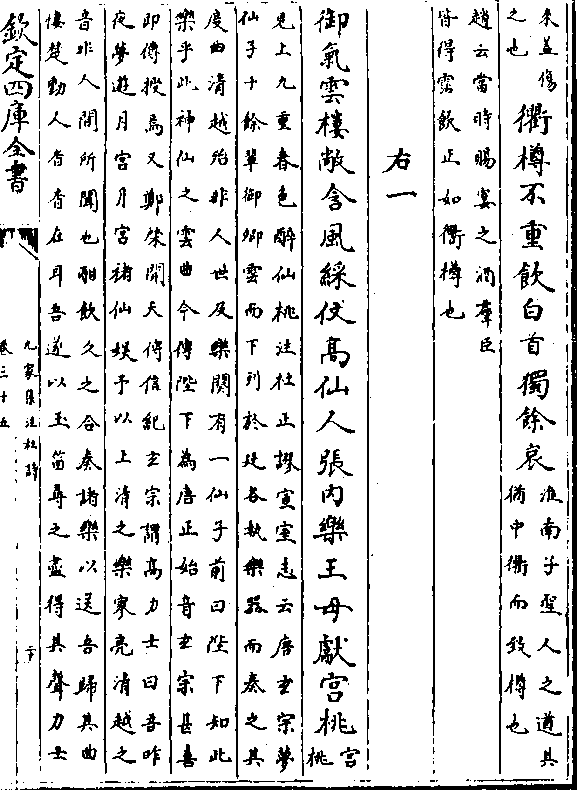 來盖傷
之也
衢樽不重飲白首獨餘哀
淮南子聖人之道其
猶中衢而致樽也
趙云當時賜宴之酒羣臣
皆得霑飲正如衢樽也
右一
御氣雲樓敞含風綵仗髙仙人張内樂王母獻宫桃
宫
桃
見上九重春色醉仙桃注杜正謬宣室志云唐玄宗夢
仙子十餘輩御卿雲而下列於廷各執樂器而奏之其
度曲清越殆非人世及樂闋有一仙子前曰陛下知此
樂乎此神仙之雲曲今傳陛下為唐正始音玄宗甚喜
即傳授焉又鄭棨開天傳信紀玄宗謂髙力士曰吾昨
夜夢遊月宫月宫諸仙娱予以上清之樂寥亮清越之
音非人間所聞也酣飲久之合奏諸樂以送吾歸其曲
悽楚動人杳杳在耳吾遂以玉笛尋之盡得其聲力士
欽定四庫全書
九家集注杜詩
卷三十五
二十